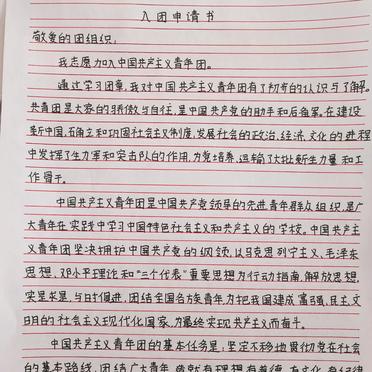 入团申请书
敬爱的团组织：
我志愿加入中国共产主义青年团。
通过学习团章，我对中国共产主义青年团有了初步的认识与了解。
共青团是大家的骄傲与自往，是中国共产党的助手和后备军。在建设
新中国，确立和巩固社会主义制度，发展社会的政治、经济、文化的进程
中发挥了生力军和突击队的作用，为党培养、运输了大批新生力量和工
作骨干。
中国共产主义青年团是中国共产党领导的先进青年群众组织，是广
大青年在实践中学习中国特色社会主义和共产主义的学校。中国共产主
义青年团坚决拥护中国共产党的纲领，以马克思列宁主义、毛泽东
思想、邓小平理论和“三个代表”重要思想为行动指南，解放思想，
实是求是，与时俱进，团结全国各族青年为把我国建成富强、民主、文
明的社会主义现代化国家，为最终实现共产主义而奋斗。
中国共产主义青年团的基本任务是：坚定不移地贯彻党在社会
的基本路线，团结广大青年